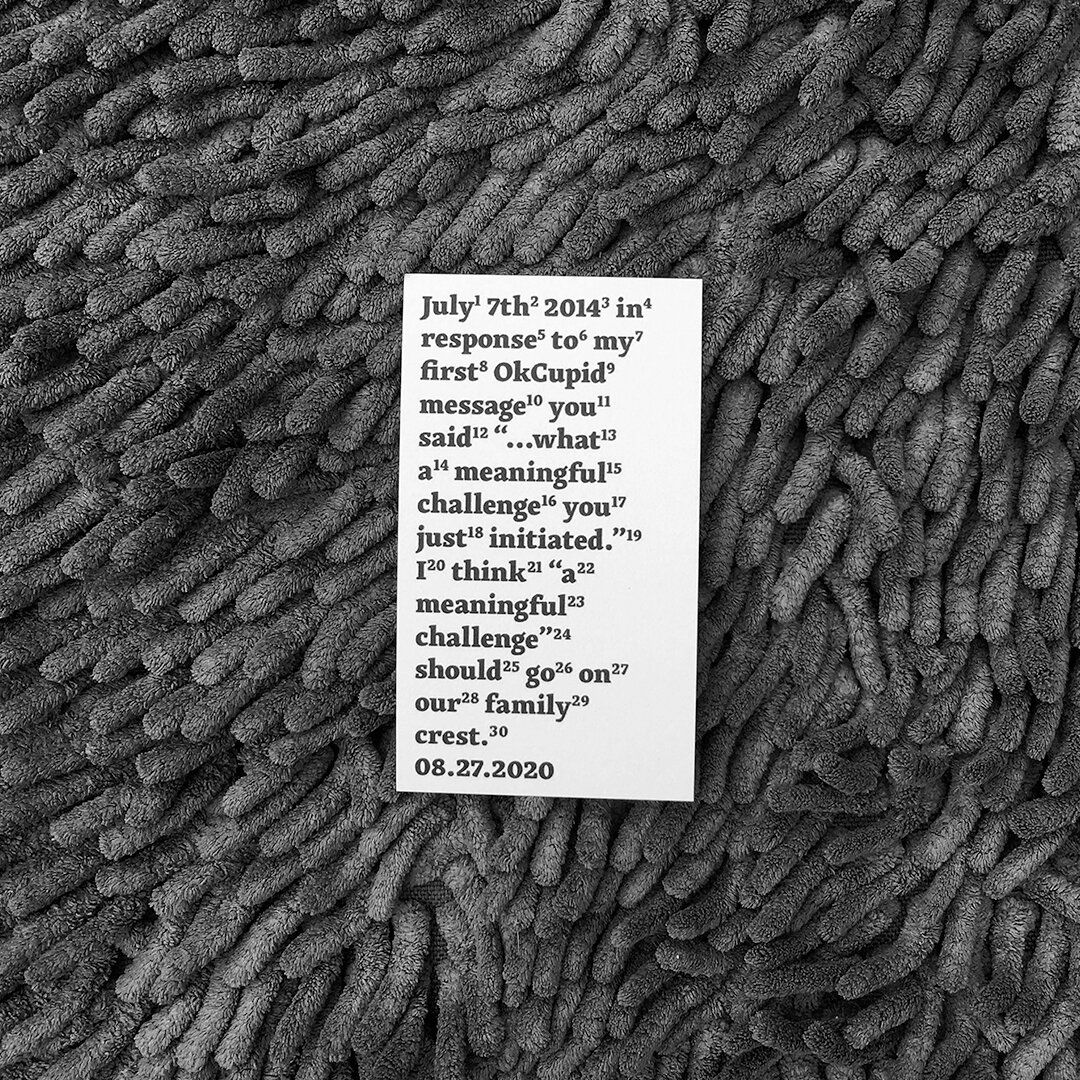 July¹ 7th² 2014³ in⁴
response⁵ to⁶ my⁷
first⁸ OkCupid⁹
message¹⁰ you¹¹
said¹² “...what¹³
a¹⁴ meaningful¹⁵
challenge¹⁶ you¹⁷
just¹⁸ initiated.”¹⁹
I²⁰ think²¹ “a²²
meaningful²³
challenge”²⁴
should²⁵ go²⁶ on²⁷
our²⁸ family²⁹
crest.³⁰
08.27.2020